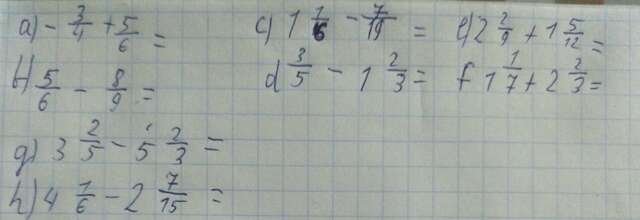 a) - 3/4 + 5/6 =
b) 5/6 - 8/9 =
c) 1 1/6 - 7/19 =
d 3/5 - 1 2/3 =
e) 2 2/9 + 1 5/12 =
f 1 1/7 + 2 2/3 =
g) 3 2/5 - 5 2/3 =
h) 4 1/6 - 2 7/15 =